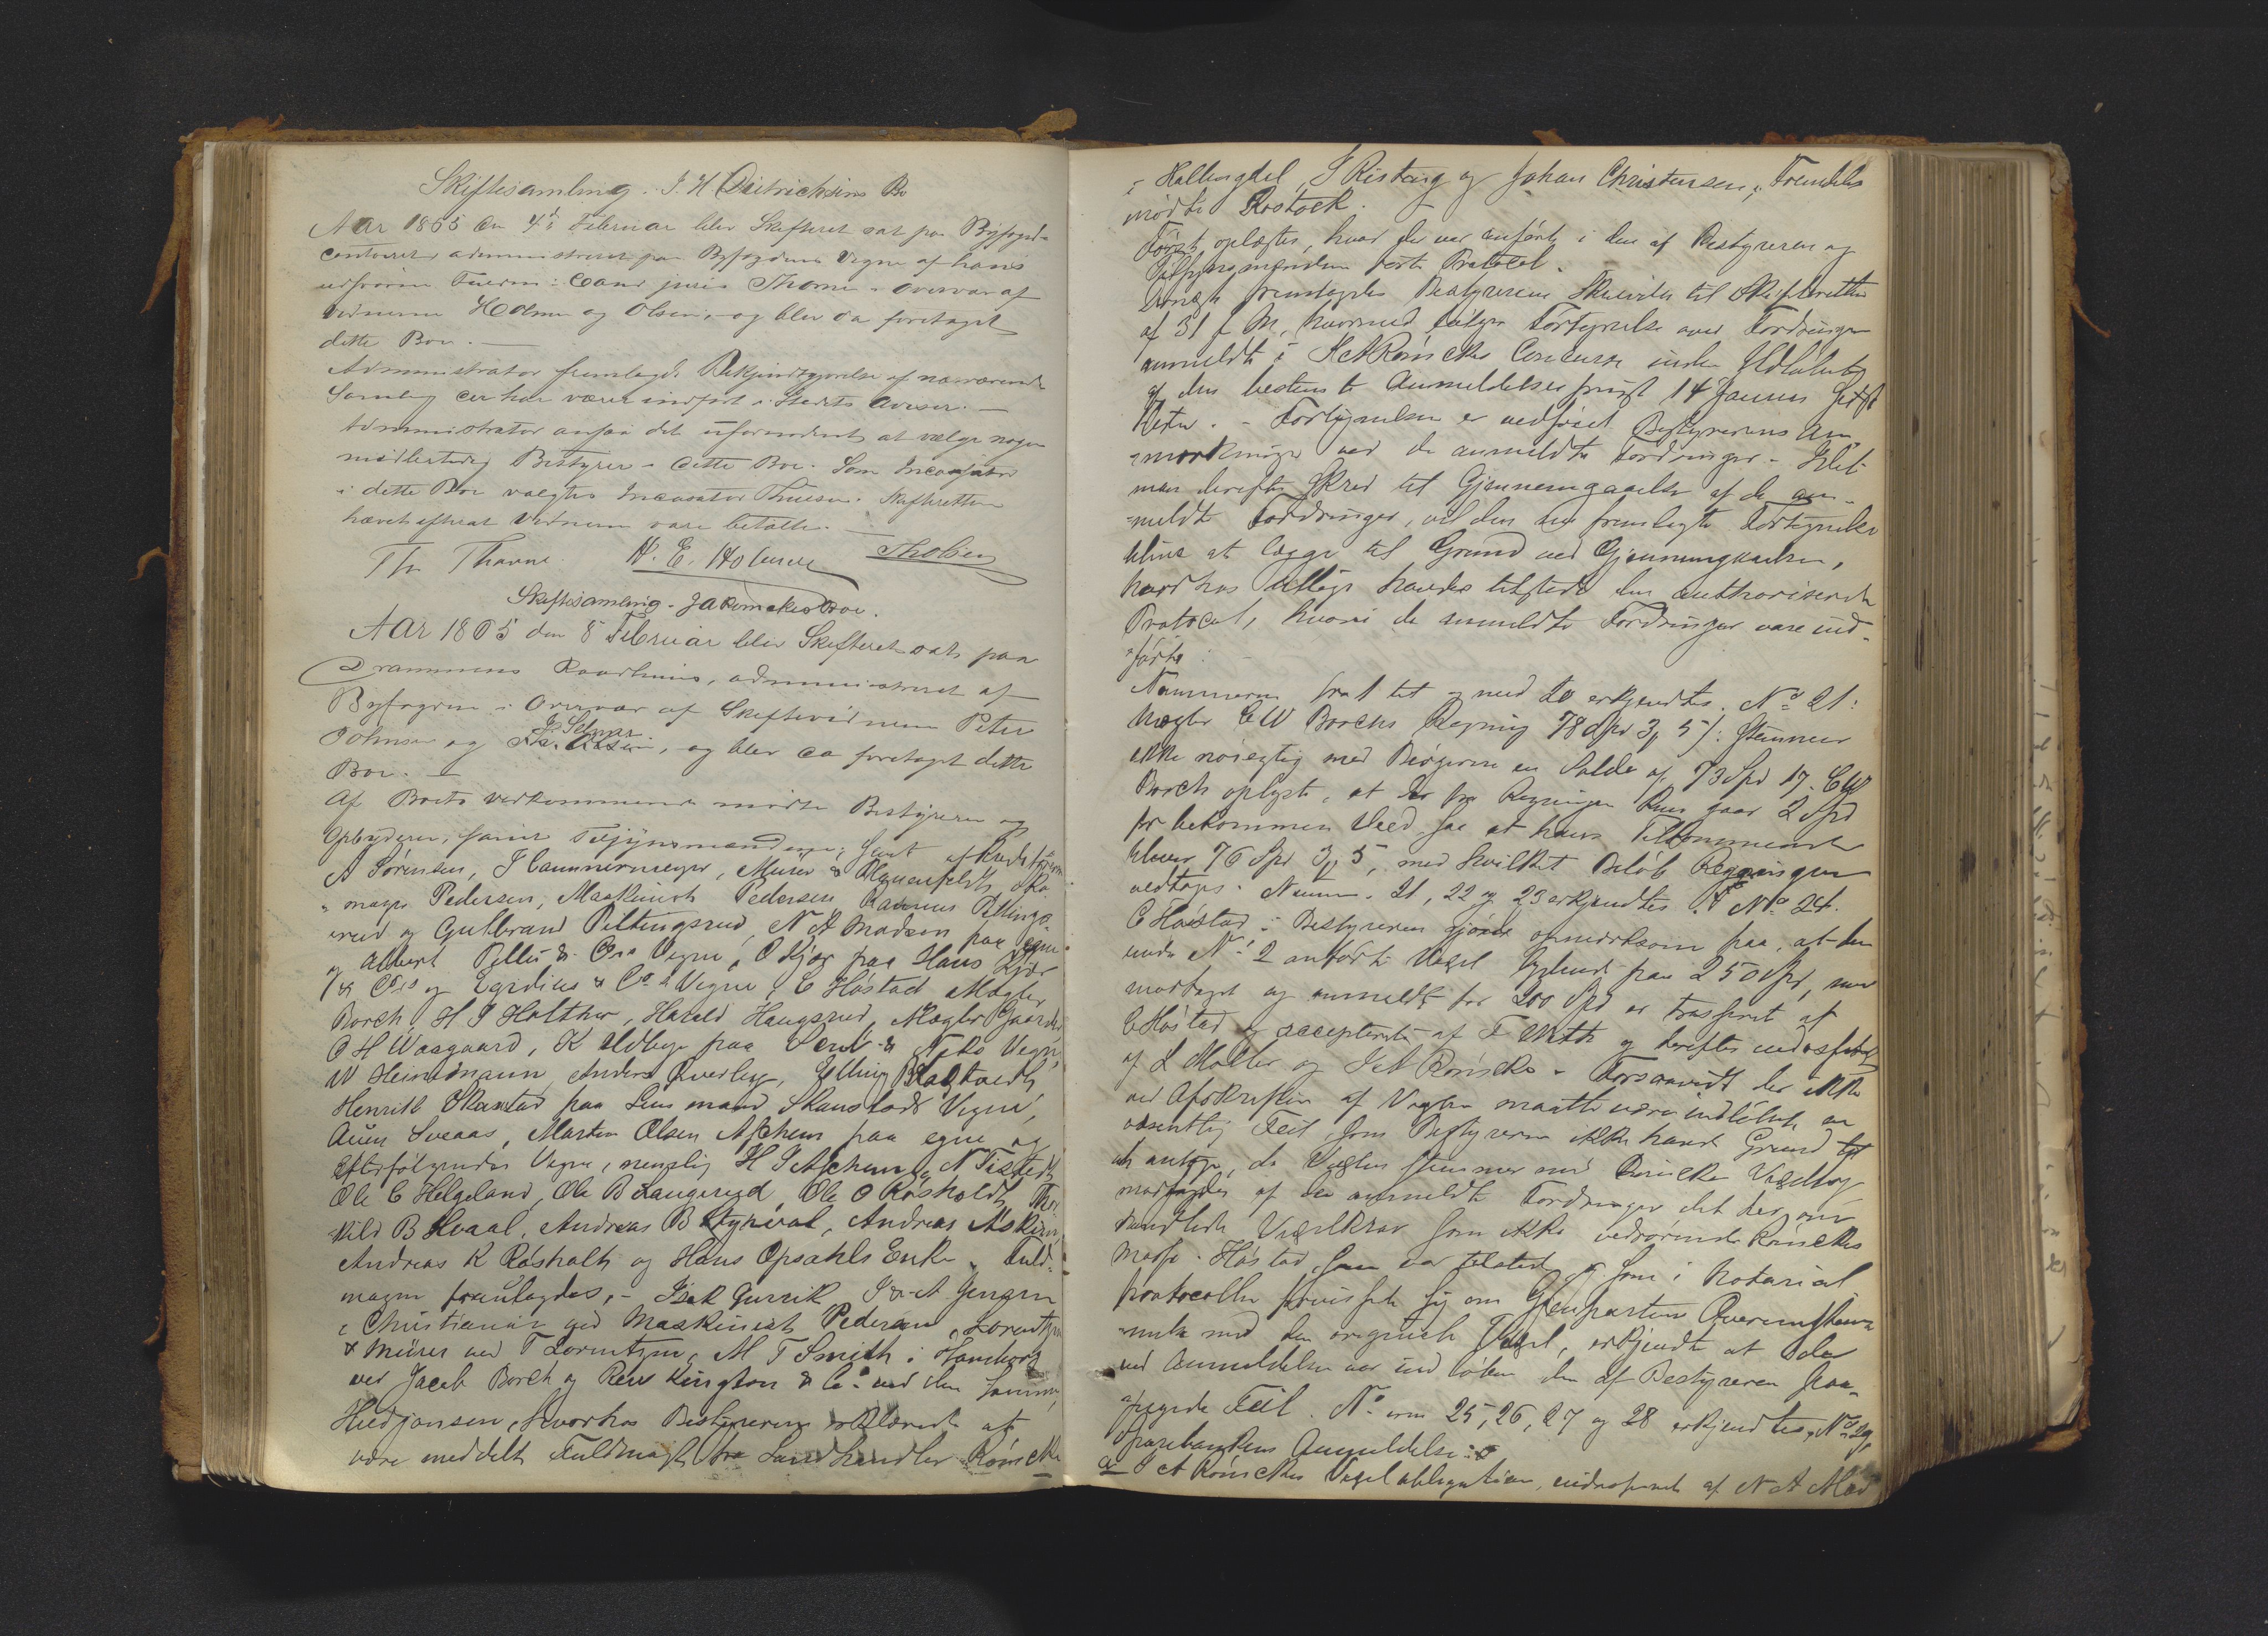 Skiftesamling. J. H Dietrichsens Bo
Aar 1865 den 4de Februar blev Skifteret sat paa Byfoged-
contoiret, administreret paa Byfogdens Vegne af hans
Fuldm: Cand juris Thorne i Overvær af
Vidnerne Holm og Olsen, og blev da foretaget
dette Boe. —
Administrator fremlagde Bekjendtgjørelse af nærværende
Samling der har været indført i Stedets Aviser. —
Administrator ansaa det ufornødent at vælge nogen
midlertidig Bestyrer i dette Boe. Som Incassator
i dette Boe valgtes Incassator Thuesen. Skifteretten
hævet efterat Vidnerne vare betalte. —
Thorne. H. E. Holm
Skiftesamling. J A Rømckes Boe.
Aar 1865 den 8 Februar blev Skifteret sat paa
Drammens Raadhuus, administreret af
Byfogden i Overvær af Skiftevidnerne Peter
Johnsen og, og blev da foretaget dette
Boe. —
Af Boets Vedkommende mødte Bestyreren og
Opbyderen, samt Tilsynsmændene; samt af Kreditorerne
A Sørensen, J Cammermeyer, Mürer & Sko-
mager Pedersen, Maskinist Pedersen, Rasmus Peltings-
rud og Gulbrand Peltingsrud, N A Madsen paa egne
og Albert Vegne, O Kjær paa Hans Kjær
& Co og Egidius & Co Vegne, E Høstad, Mægler
Borch, H J Holther, Harald Haugsrud, Mægler Gaarder
O H Waagaard, K paa Vegne,
W Heinemann, Anders Qverlie, Elling
Henrik Skanstad paa Lensmand Skanstads Vegne,
Auen Sveaas, Martin Olsen Aschem paa egne og
Efterfølgendes Vegne, nemlig H J Aschem, N Tisteth,
Ole C Helgeland, Ole B Laugeryd, Ole O Røsholdt, Thor-
kild B Hvaal, Andreas B, Andreas Askim,
Andreas K Røsholt og Hans Opsahls Enke. Fuld-
magter fremlagdes, — Isak, I & A Jensen
i Christiania ved Maskinist Pedersen, Lorentzen
& Mürer ved T Lorentzen, M T Smith i Hamborg
ved Jacob Borch og Rew Kington & Co ved den Samme,
, hvorhos Bestyreren erklærede at
være meddelt Fuldmagt fra Landhandler Rømcke
i Hallingdal, J Risting og Johan Christensen, Fremdeles
mødte Rostock.
Først oplæstes, hvad der var anført i den af Bestyreren og
Tilsynsmændene førte Protocol.
Dernæst fremlagdes Bestyrerens Skrivelse til Skifteretten
af 31 f. M., hvormed følger Fortegnelse over Fordringer
anmeldte i J A Rømckes Concurs inden Udløbet
af den bestemte Anmeldelsesfrist 14 Januar
. — Fortegnelsen er vedføiet Bestyrerens An-
mærkninger ved de anmeldte Fordringer. Idet
man derefter skred til Gjennemgaaelse af de an-
meldte Fordringer, vil den her fremlagte Fortegnelse
blive at lægge til Grund ved Gjennemgaaelsen,
hvorhos tillige havdes tilstede den authoriserede
Protocol, hvori de anmeldte Fordringer vare ind-
førte.
Nummerne fra 1 til og med 20 erkjendtes. No 21:
Mægler C W Borchs Regning 78 Spd 3 5/: stemmer
ikke nøiagtig med Bøgerne en Saldo af 73 Spd 17. C W
Borch oplyste, at der fra Regningen kun gaar 2 Spd
for bekommen Veed, saa at hans Tilkommende
bliver 76 Spd 3 5, med hvilket Beløb Regningen
vedtoges. Numm. 21, 22 og 23 erkjendtes. No 24.
E Høstad: Bestyreren gjorde opmærksom paa, at den
under No 2 anførte Vexel lydende paa 250 Spd, men
modtaget og anmeldt for 200 Spd er trasseret af
E Høstad og accepteret af F Wett og derefter endosseret
af L Møller og J A Rømcke. Forsaavidt der ikke
ved Afskriften af Vexlen maatte være indløbet en
væsentlig Feil som Bestyreren ikke havde Grund til
at antage, da Vexlen stemmer med Rømckes Vexelbog
modsagdes af de anmeldte Fordringer det her om-
handlede Vexelkrav som ikke vedrørende Rømckes
Masse. Høstad, som var tilstede og som i Notarial
protocollen forvissede sig om Gjenpartens Overensstem-
melse med den originale Vexel, erkjendte at der
ved Anmeldelsen var indløben den af Bestyreren paa-
pegede Feil. No erne 25, 26, 27 og 28 erkjendtes. No 29,
Sparebankens Anmeldelse:
a J A Rømckes Vexelobligation, endosseret af N A Mad